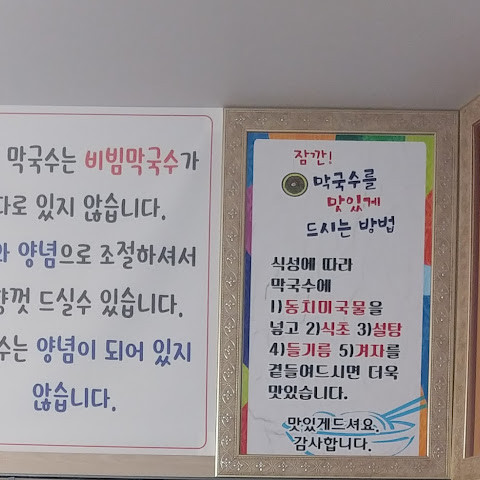 막국수는 비빔막국수가
따로 있지 않습니다.
양념으로 조절하셔서
드실수 있습니다.
양념이 되어 있지
않습니다.
잠깐!
막국수를
맛있게
드시는 방법
식성에 따라
막국수에
1)동치미국물을
넣고 2)식초 3)설탕
4)들기름 5)겨자를
곁들여드시면 더욱
맛있습니다.
맛있게드셔요.
감사합니다.